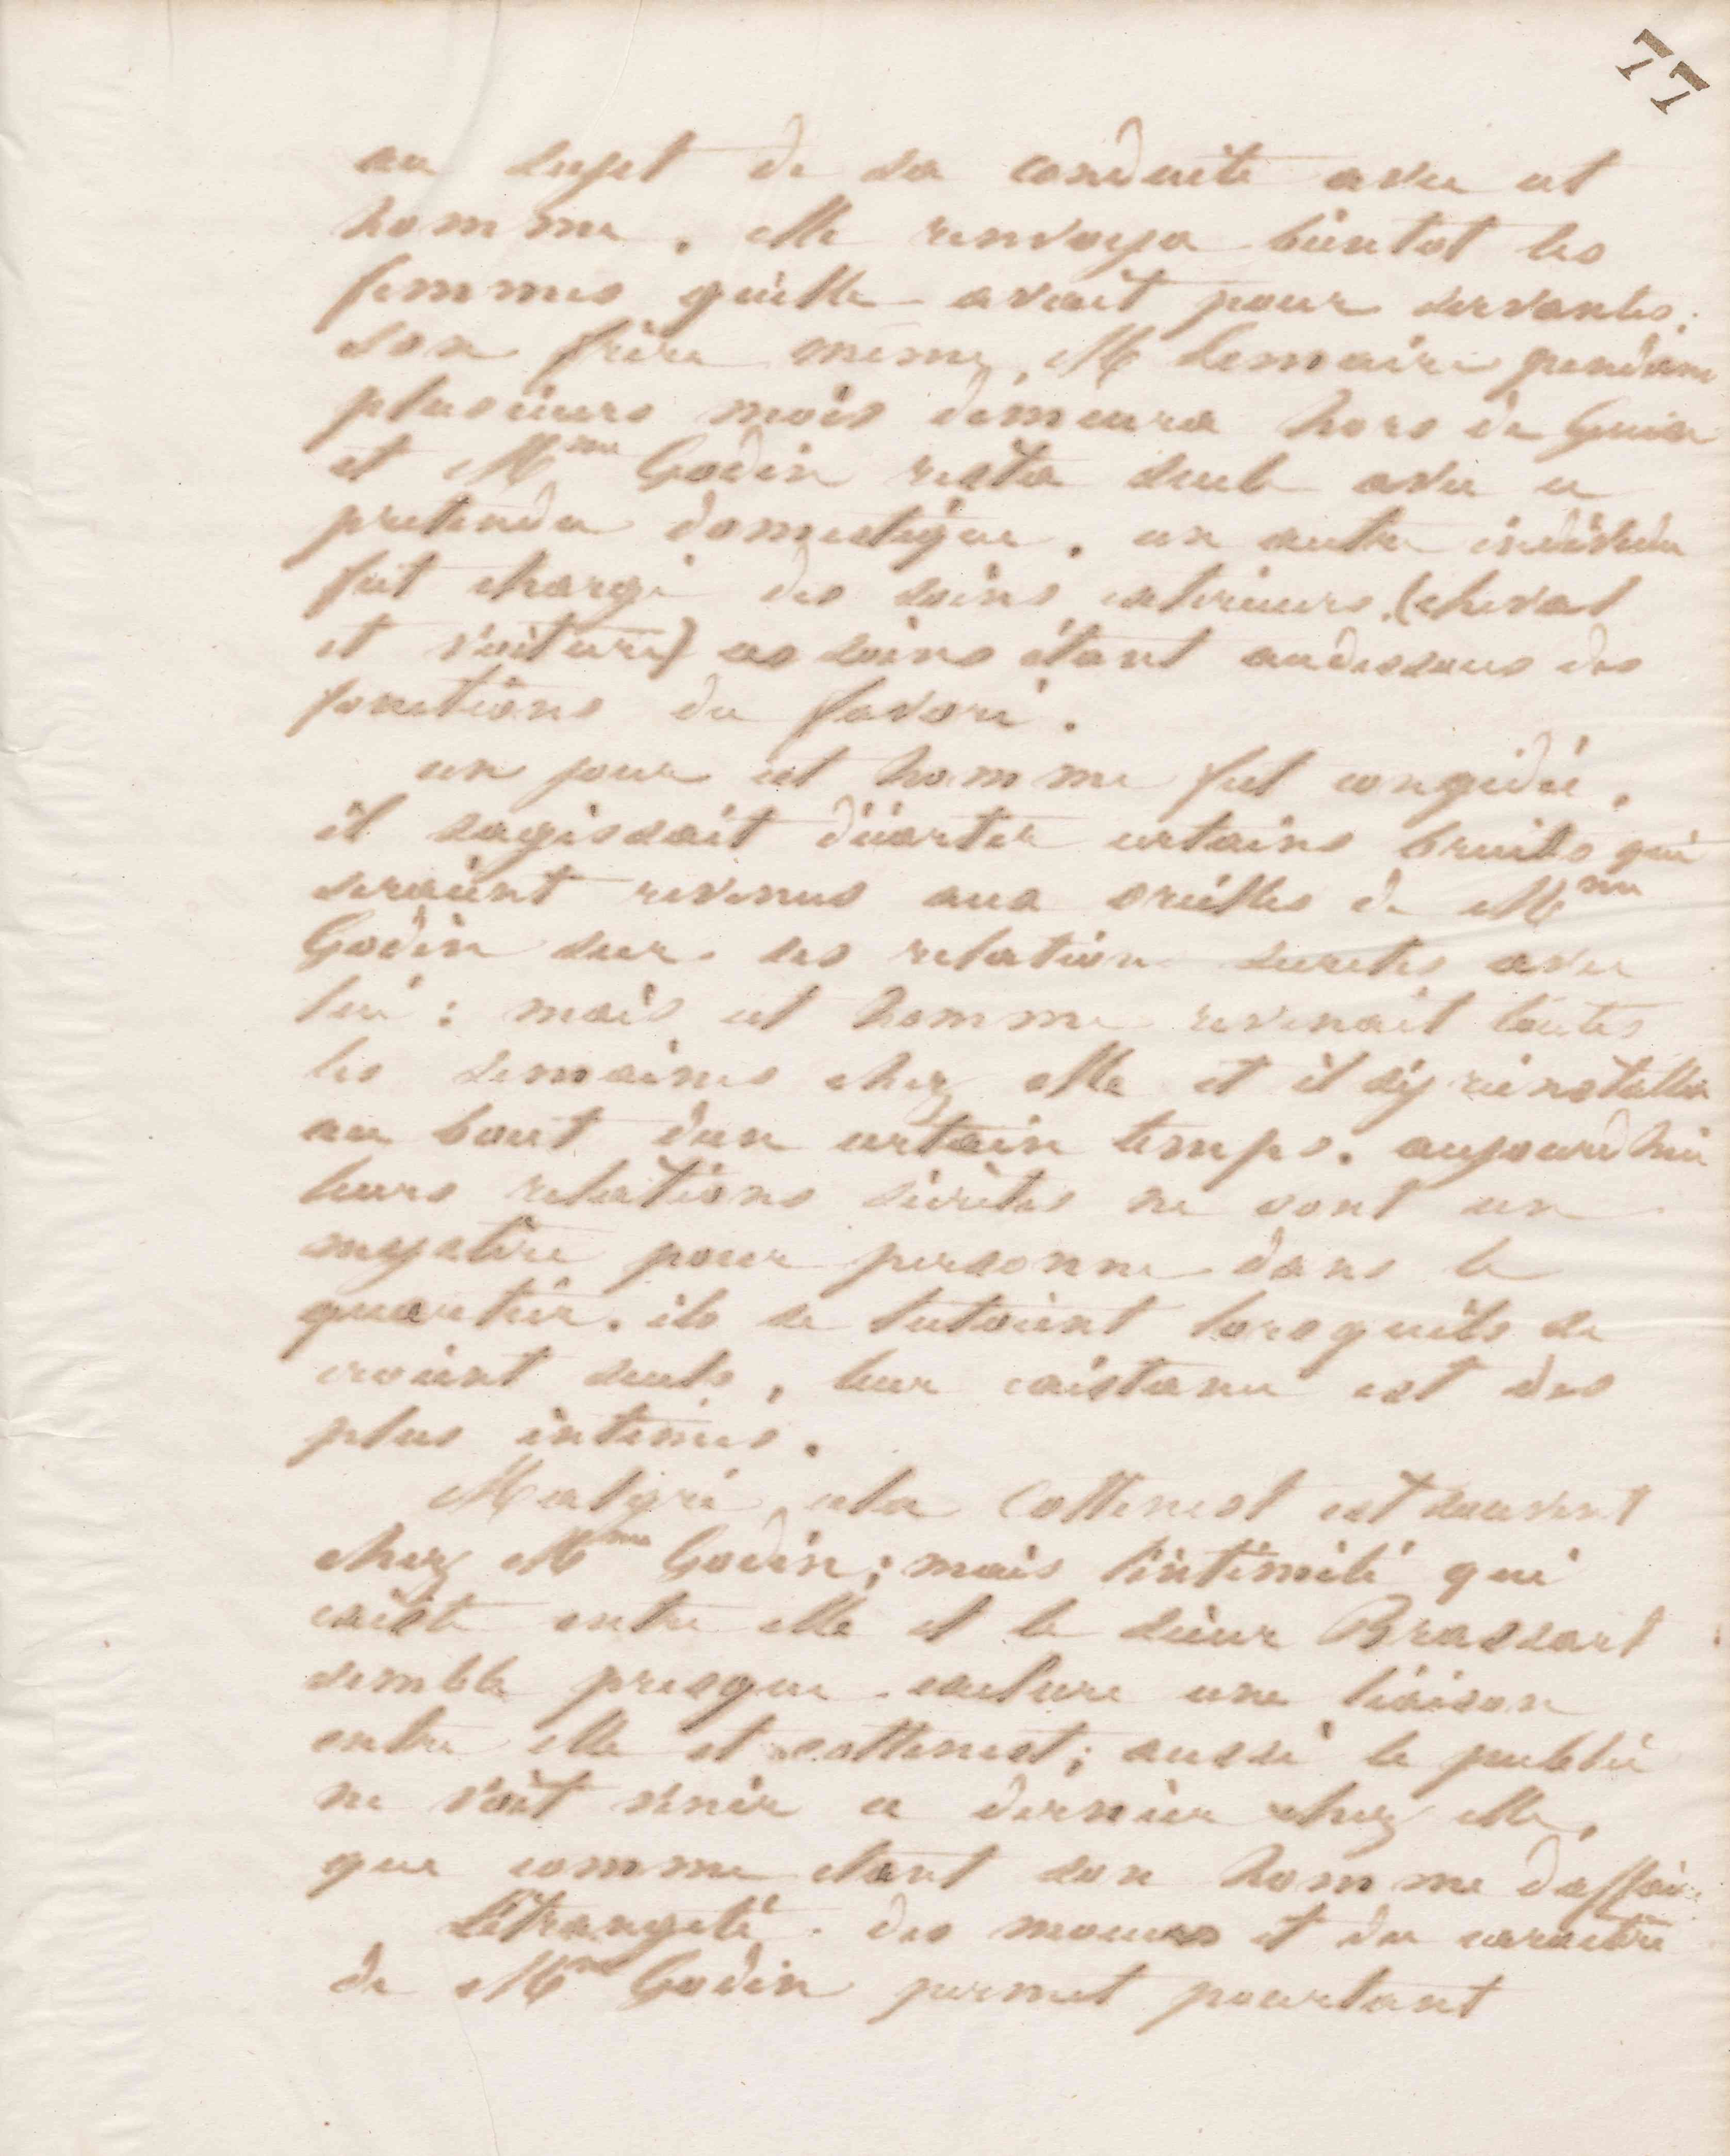 77
au sujet de sa conduite avec cet
homme. elle renvoya bientot les
femmes qu'elle avait pour servantes;
son frère même, M Lemaire pendant
plusieurs mois demeura hors de Guise
et Mme Godin resta seule avec ce
pretendu domestique. un autre individu
fut chargé des soins exterieurs (cheval
et voiture) ces soins étant audessous des
fonctions du favori.
un jour cet homme fut congédié,
il sagissait d'écarter certains bruits qui
seraient revenus aux oreilles de Mme
Godin sur ses relation secretes avec
lui : mais cet homme revenait toutes
les semaines chez elle et il s'y réinstalla
au bout d'un certain temps. aujourdhui
leurs relations secrètes ne sont un
mystère pour personne dans le
quartier. ils se tutoient lorsqu'ils se
croient seuls, leur existence est des
plus intimes.
Malgré cela Cottenest est souvent
chez Mme Godin; mais l'intimité qui
existe entre elle et le sieur Brassart
semble presque exclure une liaison
entre elle et cottenest; aussi le public
ne voit venir ce dernier chez elle,
que comme étant son homme d'affaire
L'étrangeté des moeurs et du caractère
de Mme Godin permet pourtant